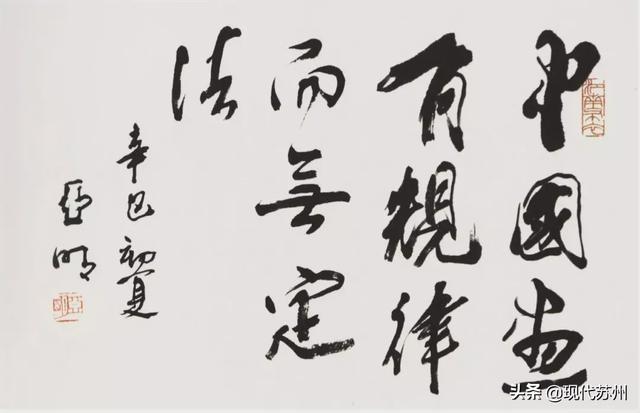 中國畫
有規律
而無定
法
辛巳初夏
亞明
亞明
头条 @现代苏州